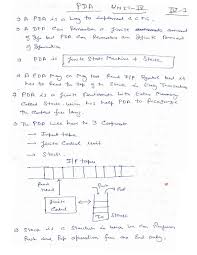 PDA Unit-IV IV-1
→ A PDA is a way to implement a CFG.
→ A DFA Can Remember a finite amount
of Info but PDA Can Remember an Infinite Amount
of Information
→ PDA is Finite State Machine + Stack
→ A PDA May or May Not Read I/P Symbol but it
has to Read the Top of the Stack in Every Transition
→ PDA is a finite Automata with Extra Memory
Called Stack which has help PDA to Recognize
the Context free lang.
→ The PDA will have the 3 Components
→ Input tape
→ Finite Control Unit
→ Stack.
I/P tapes
Read
Head
Finite
Control
Push
Pop
Stack
→ Stack is a Structure in which we Can Perform
Push and Pop operation from one End only.